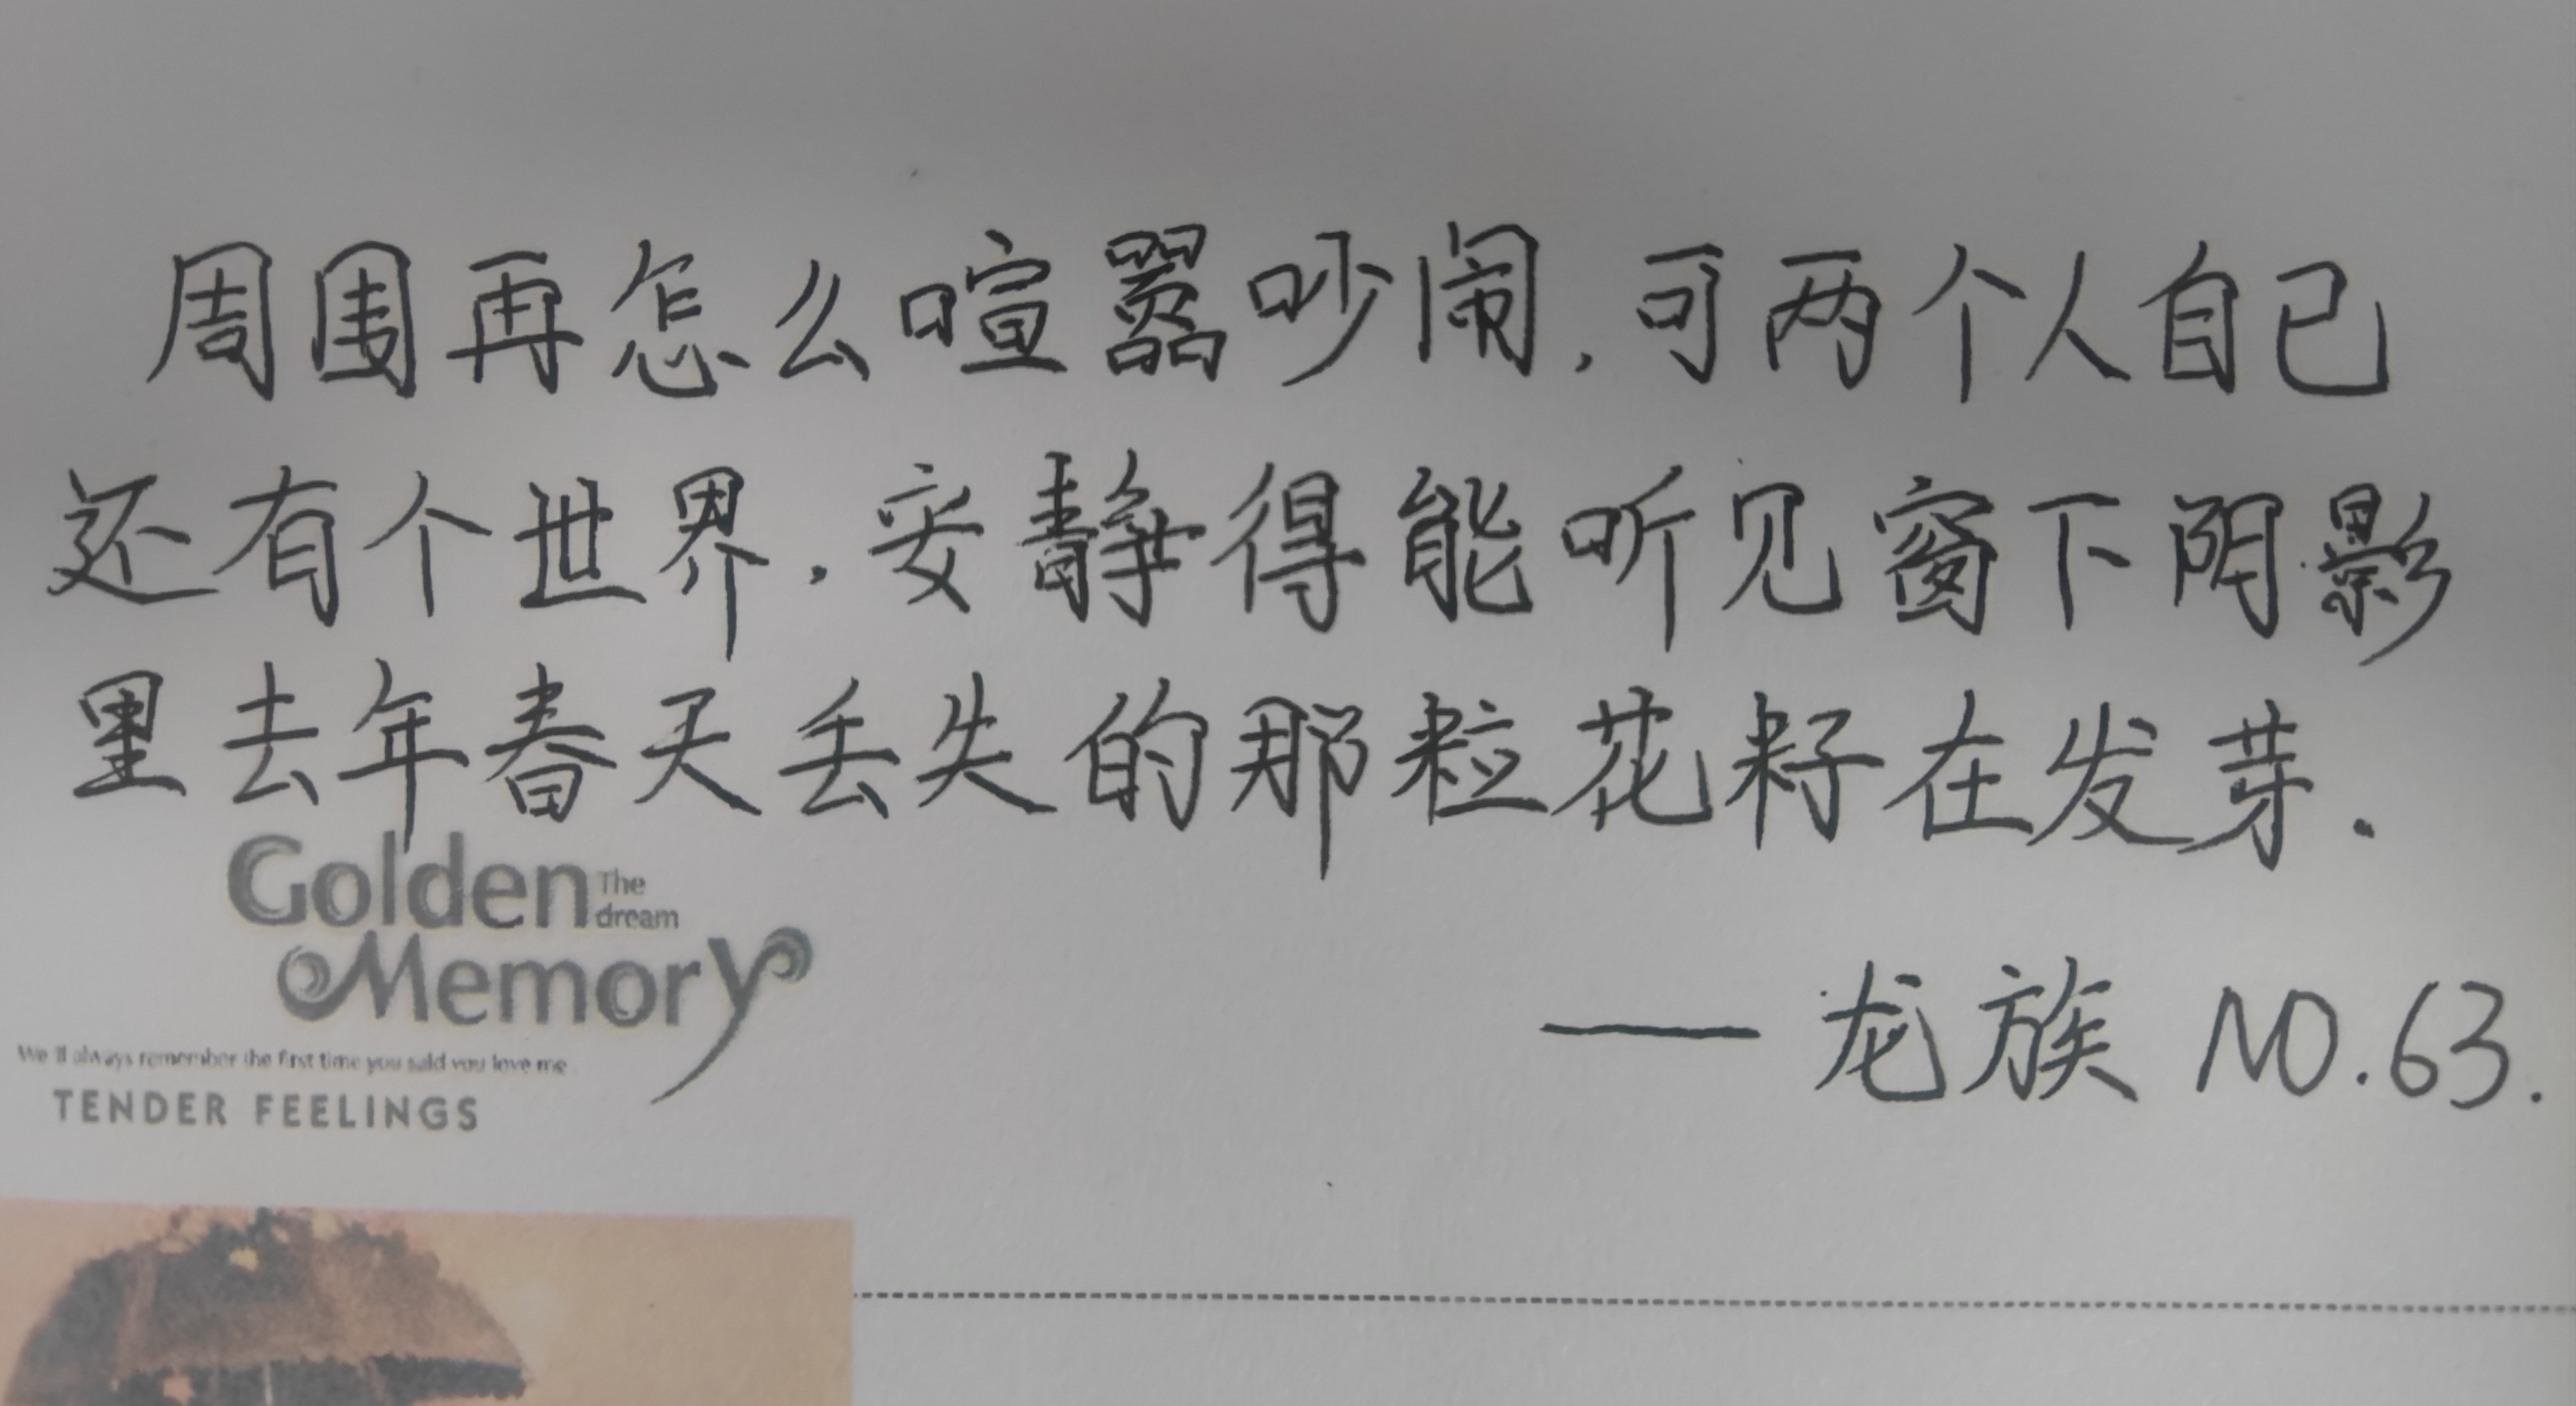 周围再怎么喧嚣吵闹,可两个人自己
还有个世界.安静得能听见窗下阴影
里去年春天丢失的那粒花籽在发芽.
Golden The dream
Memory
We'll always remember the first time you said you love me
TENDER FEELINGS
——龙族 NO.63.